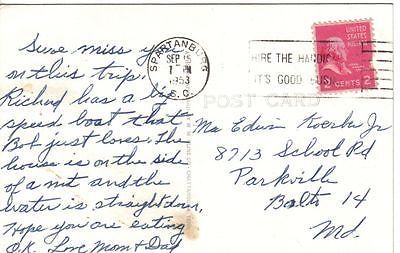 Sure miss you
on this trip.
Richard has a big
speed boat that
Bob just loves. The
house is on the side
of a mt and the
water is straight down,
Hope you are eating
O.K. Love Mom & Dad
SPARTANBURG
SEP 15
1 PM
1953
S.C.
HIRE THE HANDIC
IT'S GOOD BUSI
UNITED
STATES
POSTAGE
2 CENTS 2
POST CARD
Edwin Koerber Jr
8713 School Rd
Parkville
Balto 14
Md.